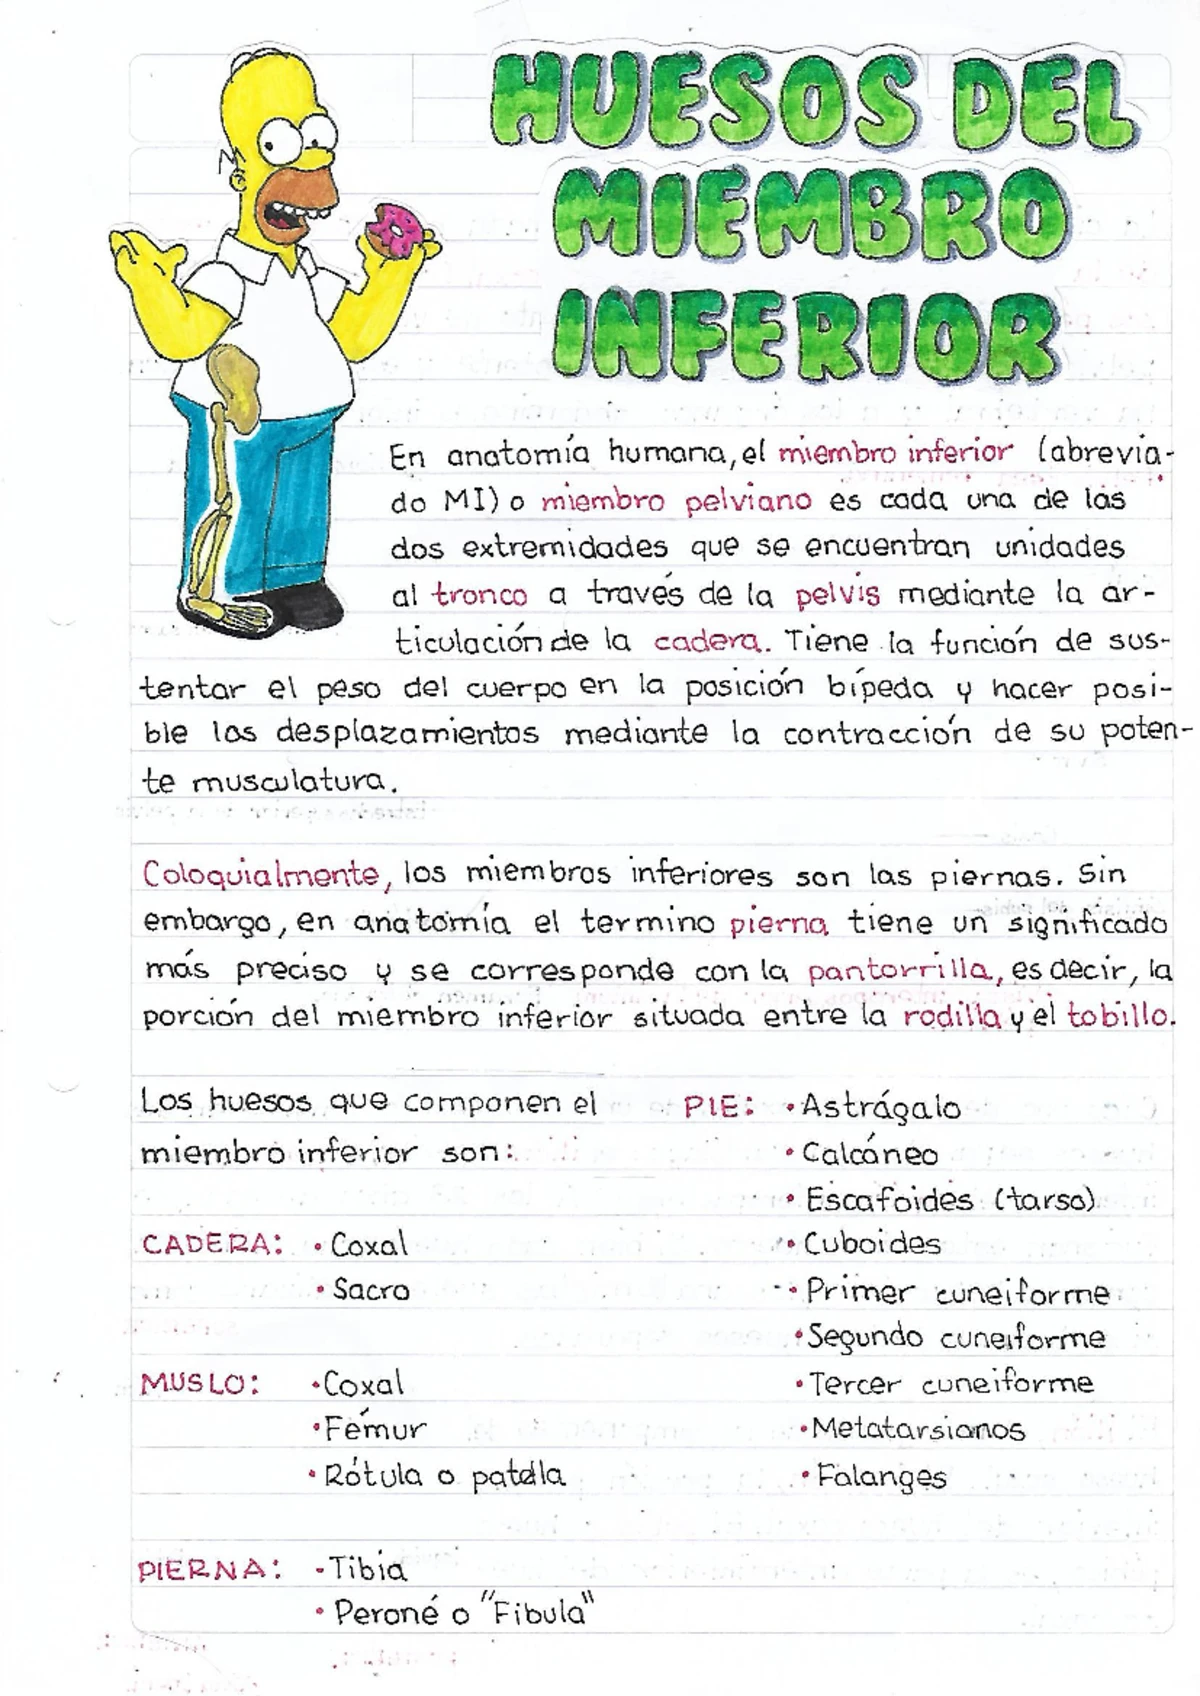 HUESOS DEL
MIEMBRO
INFERIOR
En anatomía humana, el miembro inferior (abrevia-
do MI) o miembro pelviano es cada una de las
dos extremidades que se encuentran unidades
al tronco a través de la pelvis mediante la ar-
ticulación de la cadera. Tiene la función de sus-
tentar el peso del cuerpo en la posición bípeda y hacer posi-
ble los desplazamientos mediante la contracción de su poten-
te musculatura.
Coloquialmente, los miembros inferiores son las piernas. Sin
embargo, en anatomía el termino pierna tiene un significado
más preciso y se corresponde con la pantorrilla, es decir, la
porción del miembro inferior situada entre la rodilla y el tobillo.
Los huesos que componen el
miembro inferior son:
CADERA: • Coxal
• Sacro
MUSLO: • Coxal
• Fémur
• Rótula o patella
PIERNA: • Tibia
• Peroné o "Fibula"
PIE: • Astrágalo
• Calcáneo
• Escafoides (tarso)
• Cuboides
• Primer cuneiforme
• Segundo cuneiforme
• Tercer cuneiforme
• Metatarsianos
• Falanges